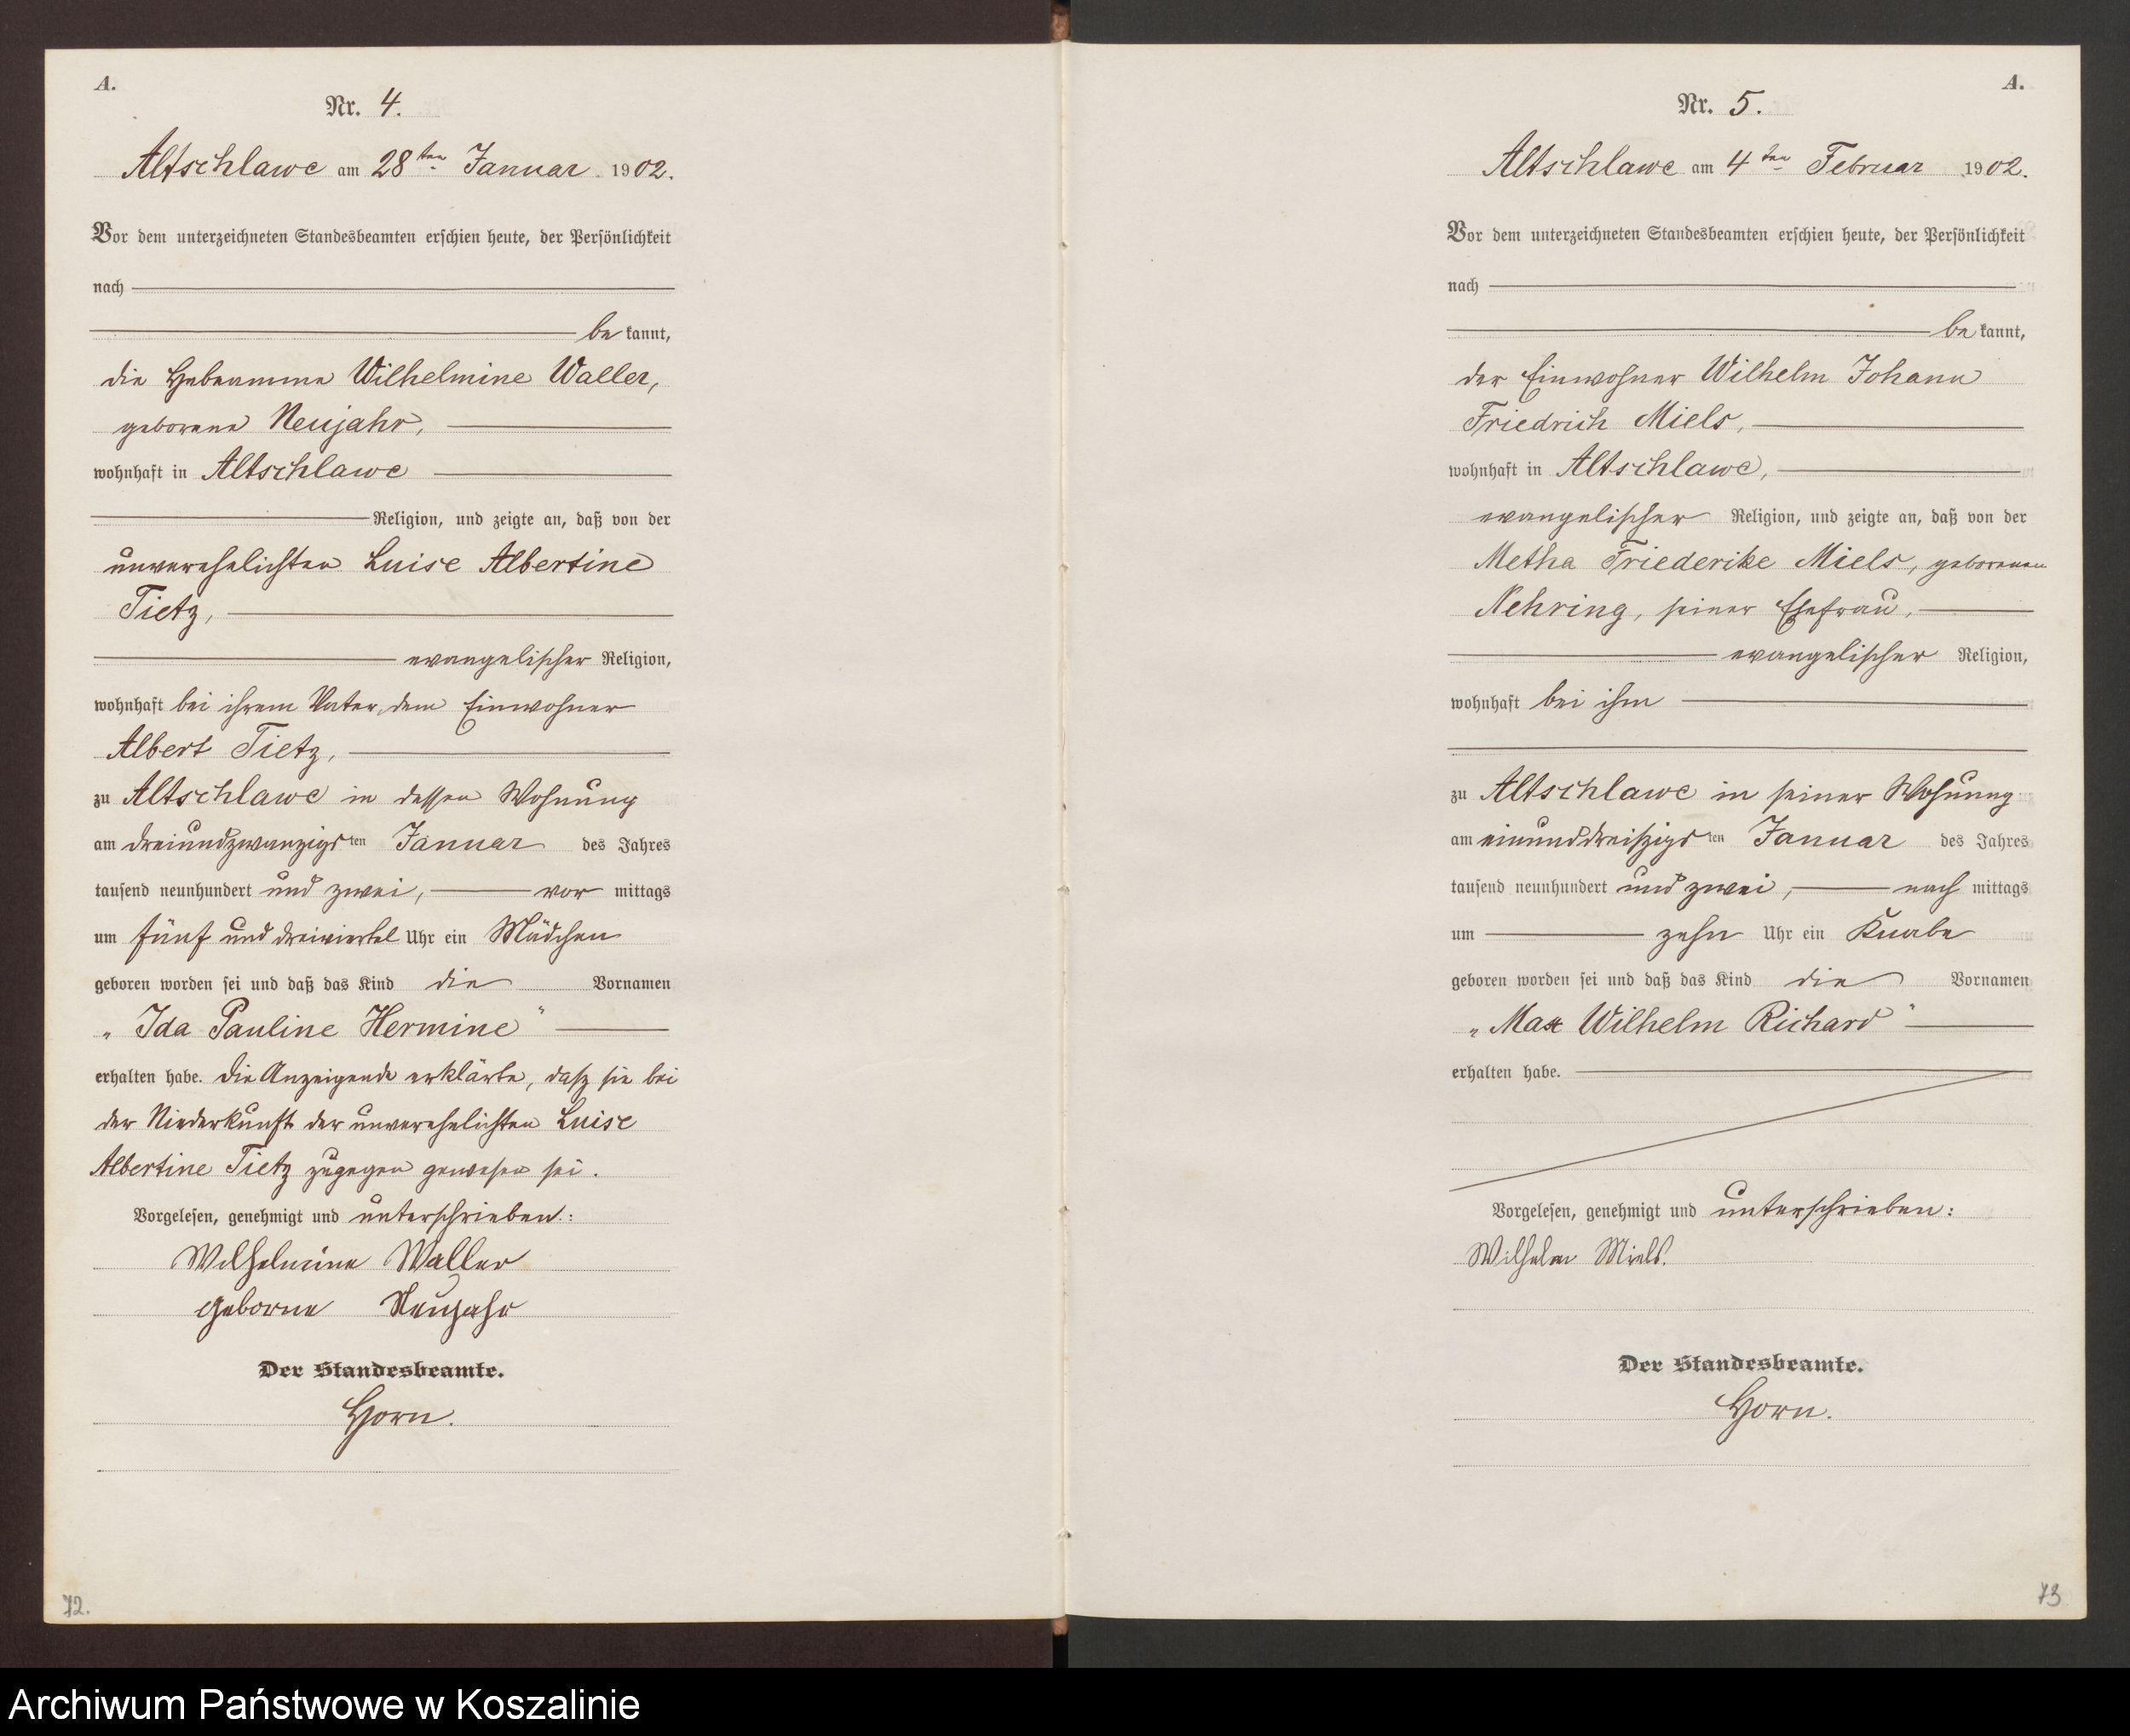 A.
Nr. 4.
Altschlawe am 28ten Januar 1902.
Vor dem unterzeichneten Standesbeamten erschien heute, der Persönlichkeit
nach
be kannt,
die Hebeamme Wilhelmine Waller,
geborene Neujahr,
wohnhaft in Altschlawe
Religion, und zeigte an, daß von der
unverehelichten Luise Albertine
Tietz,
evangelischer Religion,
wohnhaft bei ihrem Vater, dem Einwohner
Albert Tietz,
zu Altschlawe in dessen Wohnung
am dreiundzwanzigsten Januar des Jahres
tausend neunhundert und zwei, vor mittags
um fünf und dreiviertel Uhr ein Mädchen
geboren worden sei und daß das Kind die Vornamen
„Ida Pauline Hermine“
erhalten habe. Die Anzeigende erklärte, daß sie bei
der Niederkunft der unverehelichten Luise
Albertine Tietz zugegen gewesen sei.
Vorgelesen, genehmigt und unterschrieben:
Wilhelmine Waller
geborne Neujahr
Der Standesbeamte.
Horn.
72.
A.
Nr. 5.
Altschlawe am 4ten Februar 1902.
Vor dem unterzeichneten Standesbeamten erschien heute, der Persönlichkeit
nach
be kannt,
der Einwohner Wilhelm Johann
Friedrich Miels,
wohnhaft in Altschlawe,
evangelischer Religion, und zeigte an, daß von der
Metha Friederike Miels, geborenen
Nehring, seiner Ehefrau,
evangelischer Religion,
wohnhaft bei ihm
zu Altschlawe in seiner Wohnung
am einunddreißigsten Januar des Jahres
tausend neunhundert und zwei, nach mittags
um zehn Uhr ein Knabe
geboren worden sei und daß das Kind die Vornamen
„Max Wilhelm Richard“
erhalten habe.
Vorgelesen, genehmigt und unterschrieben:
Wilhelm Miels.
Der Standesbeamte.
Horn.
73
Archiwum Państwowe w Koszalinie